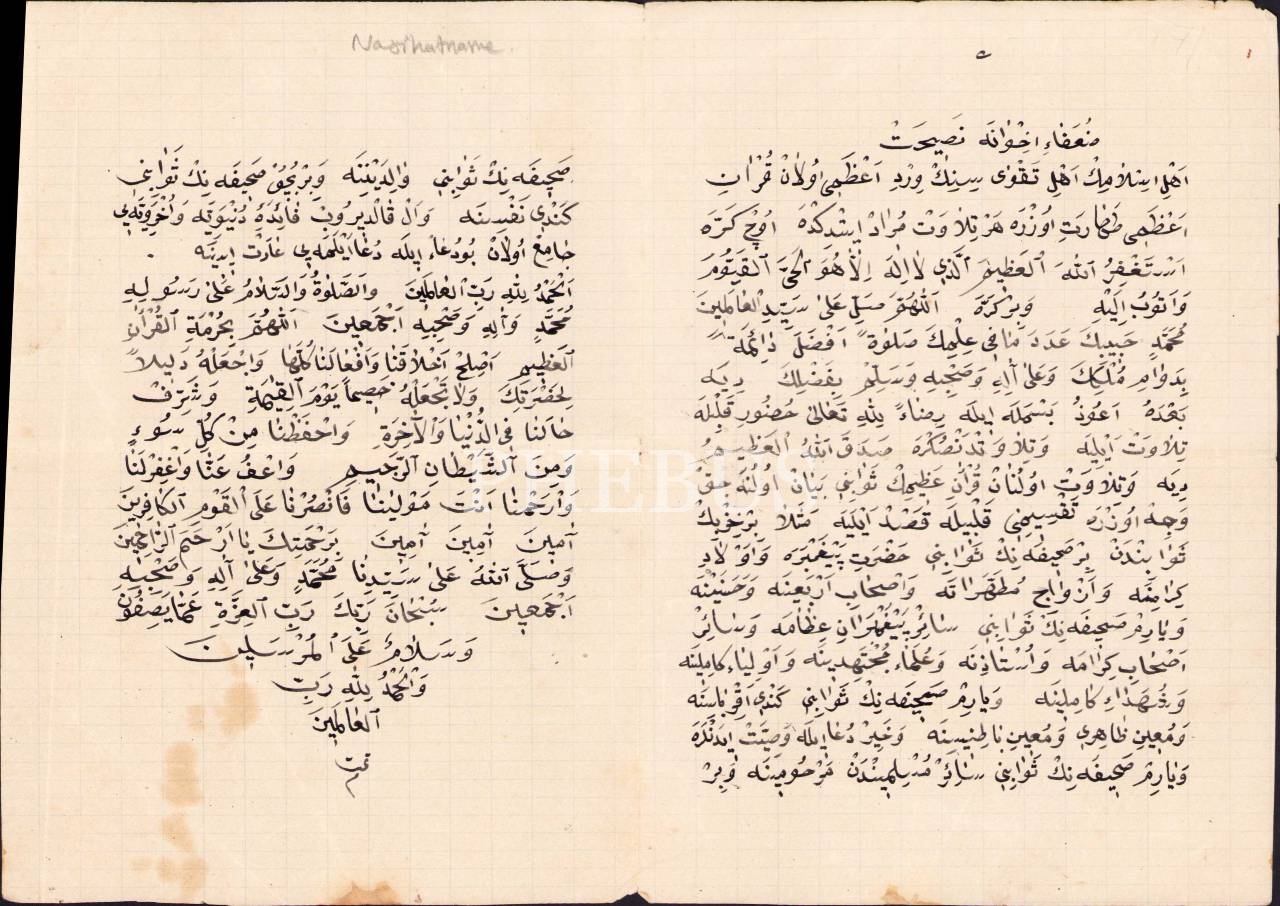 ضُعَفَاءِ اِخْوَانَه نَصِيحَتْ
اَهْلِ اِسْلَامِكْ اَهْلِ تَقْوٰى سِينِكْ وِرْدِ اَعْظَمِى اُولَانْ قُرْاٰنِ
اَعْظَمِى طَهَارَتِ اُوزْرَه هَرْ تِلَاوَتْ مُرَادْ اِيتْدِكْدَه اُوچْ كَرَّه
اَسْتَغْفِرُ اللّٰهَ الْعَظِيمَ الَّذِى لَا اِلٰهَ اِلَّا هُوَ الْحَىَّ الْقَيُّومَ
وَاَتُوبُ اِلَيْهِ وَبِرْ كَرَّه اَللّٰهُمَّ صَلِّ عَلٰى سَيِّدِ الْعَالَمِينَ
مُحَمَّدٍ حَبِيبِكَ عَدَدَ مَا فِى عِلْمِكَ صَلٰوةً اَفْضَلَ دَائِمَةً
بِدَوَامِ مُلْكِكَ وَعَلٰى اٰلِهِ وَصَحْبِهِ وَسَلِّمْ بِفَضْلِكَ دِيَه
بَعْدَهُ اَعُوذُ بَسْمَلَه اِيلَه رِضَاءً لِلّٰهِ تَعَالٰى حُضُورِ قَلْبْلَه
تِلَاوَتْ اَيْلِيَه وَتِلَاوَتْدَنْ صُكْرَه صَدَقَ اللّٰهُ الْعَظِيمُ
دِيَه وَتِلَاوَتْ اُولُنَانْ قُرْاٰنِ عَظِيمِكْ ثَوَابِنِى بَيَانْ اُولُنَه جَقْ
وَجِهْ اُوزْرَه تَقْسِيمِنِى قَلْبِيلَه قَصْدْ اَيْلِيَه مَثَلَا بِرْ جُزْئِكْ
ثَوَابِنْدَنْ بِرْ صَحِيفَه نِكْ ثَوَابِنِى حَضْرَتِ پَيْغَمْبَرَه وَاَوْلَادِ
كِرَامِنَه وَاَزْوَاجِ مُطَهَّرَاتَه وَاَصْحَابِ اَرْبَعَنَه وَحَسَنَيْنَه
وَيَارِمْ صَحِيفَه نِكْ ثَوَابِنِى سَائِرْ پَيْغَمْبَرَانِ عِظَامَه وَسَائِرْ
اَصْحَابِ كِرَامَه وَاُسْتَاذِنَه وَعُلَمَاءِ مُجْتَهِدِينَه وَاَوْلِيَاءِ كَامِلِينَه
وَشُهَدَاءِ كَامِلِينَه وَيَارِمْ صَحِيفَه نِكْ ثَوَابِنِى كَنْدِى اَقْرَبَاسِنَه
وَمُعِينِ ظَاهِرِى وَمُعِينِ بَاطِنِيسِنَه وَخَيْرْ دُعَا اِيلَه وَصِيَّتْ اِيدَنْلَرَه
وَيَارِمْ صَحِيفَه نِكْ ثَوَابِنِى سَائِرْ مُسْلِمِينْدَنْ مَرْحُومِينَه وَبِرْ
Nasihatname
صَحِيفَه نِكْ ثَوَابِنِى وَالِدَيْنِنَه وَبِرْ بُچُقْ صَحِيفَه نِكْ ثَوَابِنِى
كَنْدِى نَفْسِنَه وَاَلْ قَالْدِيرُوبْ فَائِدَۀِ دُنْيَوِيَّه وَاُخْرَوِيَّه يِى
جَامِعْ اُولَانْ بُو دُعَاءْ اِيلَه دُعَا اَيْلَمَه يِى عَادَتْ اِيدِينَه
اَلْحَمْدُ لِلّٰهِ رَبِّ الْعَالَمِينَ وَالصَّلٰوةُ وَالسَّلَامُ عَلٰى رَسُولِهِ
مُحَمَّدٍ وَاٰلِهِ وَصَحْبِهِ اَجْمَعِينَ اَللّٰهُمَّ بِحُرْمَةِ الْقُرْاٰنِ
الْعَظِيمِ اَصْلِحْ اَخْلَاقَنَا وَاَفْعَالَنَا كُلَّهَا وَاجْعَلْهُ دَلِيلاً
لِحَضْرَتِكَ وَلَا تَجْعَلْهُ خَصِيماً يَوْمَ الْقِيٰمَةِ وَشَرِّفْ
حَالَنَا فِى الدُّنْيَا وَالْاٰخِرَةِ وَاحْفَظْنَا مِنْ كُلِّ سُوءٍ
وَمِنَ الشَّيْطَانِ الرَّجِيمِ وَاعْفُ عَنَّا وَاغْفِرْ لَنَا
وَارْحَمْنَا اَنْتَ مَوْلٰينَا فَانْصُرْنَا عَلَى الْقَوْمِ الْكَافِرِينَ
اٰمِينَ اٰمِينَ اٰمِينَ بِرَحْمَتِكَ يَا اَرْحَمَ الرَّاحِمِينَ
وَصَلَّى اللّٰهُ عَلٰى سَيِّدِنَا مُحَمَّدٍ وَعَلٰى اٰلِهِ وَصَحْبِهِ
اَجْمَعِينَ سُبْحَانَ رَبِّكَ رَبِّ الْعِزَّةِ عَمَّا يَصِفُونَ
وَسَلَامٌ عَلَى الْمُرْسَلِينَ
وَالْحَمْدُ لِلّٰهِ رَبِّ
الْعَالَمِينَ
تمت
PHEBUS